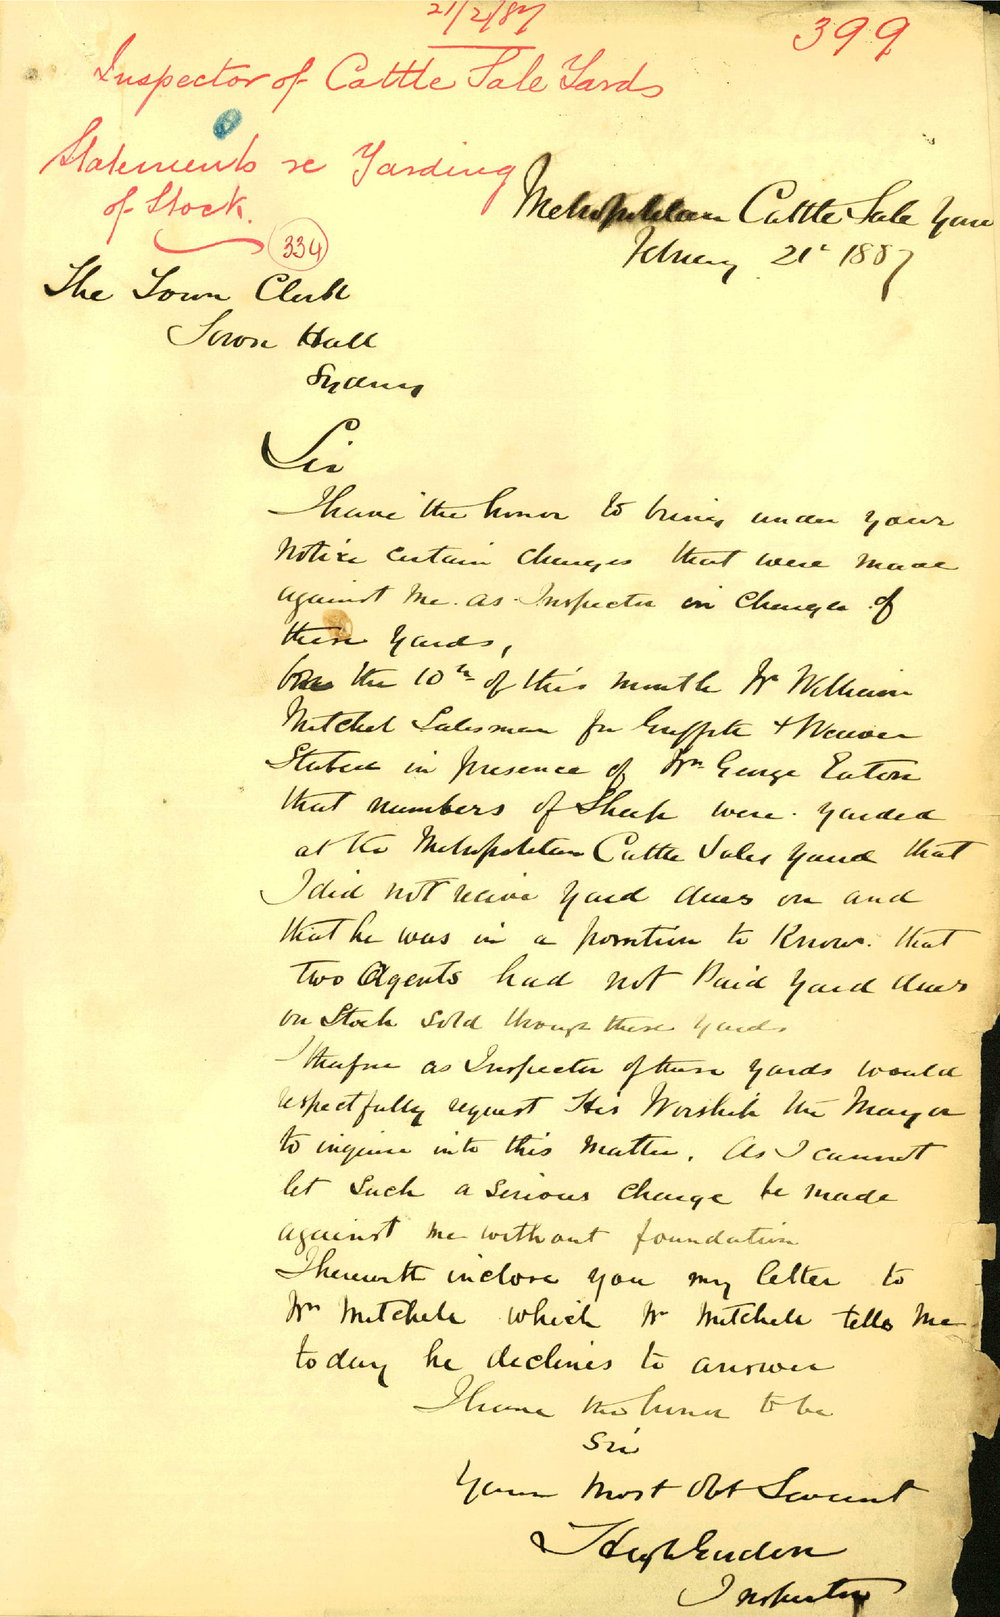 21/2/87
399
Inspector of Cattle Sale Yards
Statements re Yarding
of Stock.
334
Metropolitan Cattle Sale Yard
February 21st 1887
The Town Clerk
Town Hall
Sydney
Sir
I have the honor to bring under your
notice certain charges that were made
against me as Inspector in charge of
these Yards,
on the 10th of this month Mr William
Mitchel Salesman for Griffith & Weaver
Stated in presence of Mr George Eaton
that numbers of Sheep were yarded
at the Metropolitan Cattle Sales Yard that
I did not receive yard dues on and
that he was in a position to Know that
two Agents had not Paid yard dues
on Stock sold through these yards
I therefore as Inspector of these yards would
respectfully request His Worship the Mayor
to inquire into this matter. As I cannot
let such a serious charge be made
against me without foundation
I herewith inclose you my letter to
Mr Mitchell which Mr Mitchell tells me
to day he declines to answer
I have the honor to be
Sir
Your Most Obt Servant
Hugh
Inspector